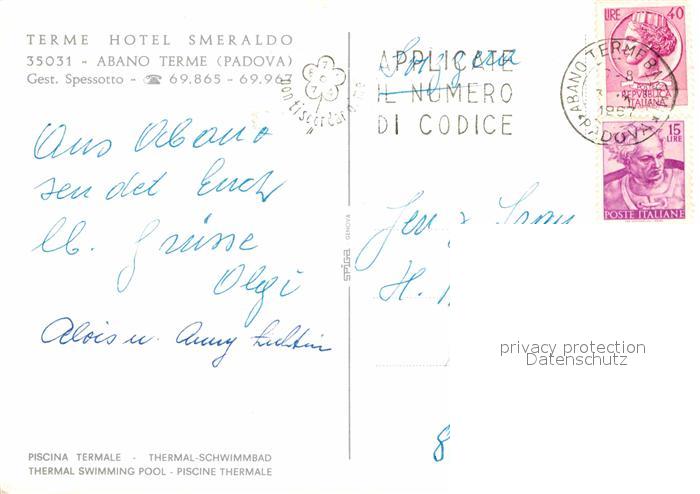 TERME HOTEL SMERALDO
35031 - ABANO TERME (PADOVA)
Gest. Spessotto - ☎ 69.865 - 69.967
Aus Abano
sendet Euch
lb. Grüsse
Olgi
Alois u. Anny
PISCINA TERMALE - THERMAL-SCHWIMMBAD
THERMAL SWIMMING POOL - PISCINE THERMALE
SPIGA GENOVA
Non ti scordar
APPLICATE
IL NUMERO
DI CODICE
Svizzera
ABANO-TERME
PADOVA
1967
LIRE 40
REPUBBLICA
ITALIANA
15
LIRE
POSTE ITALIANE
H.
8
privacy protection
Datenschutz